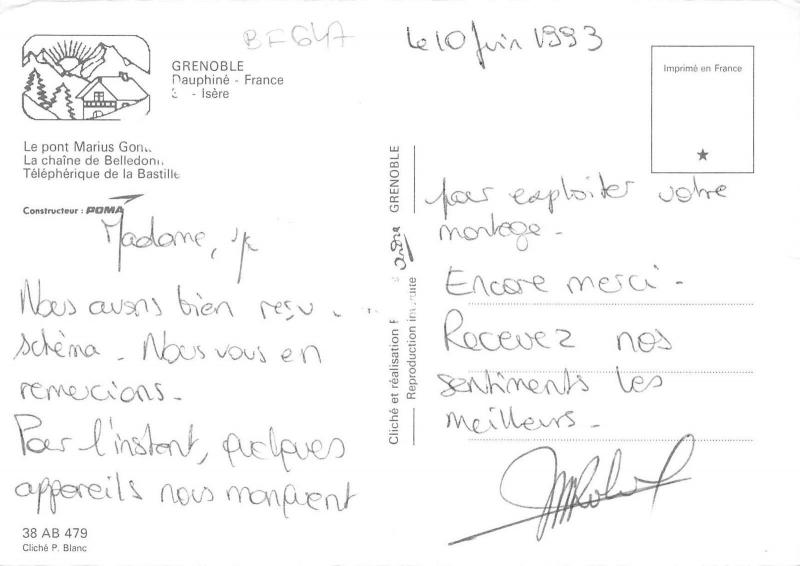 BF647
le 10 Juin 1993
GRENOBLE
Dauphiné - France
- Isère
Imprimé en France
Le pont Marius Gon
La chaîne de Belledonn
Téléphérique de la Bastille
Constructeur : POMA
Madame,
Nous avons bien reçu
schèma - Nous vous en
remercions -
Pour l'instant, quelques
appareils nous manquent
38 AB 479
Cliché P. Blanc
Cliché et réalisation GRENOBLE
Reproduction
pour exploiter votre
montage -
Encore merci -
Recevez nos
sentiments les
meilleurs -